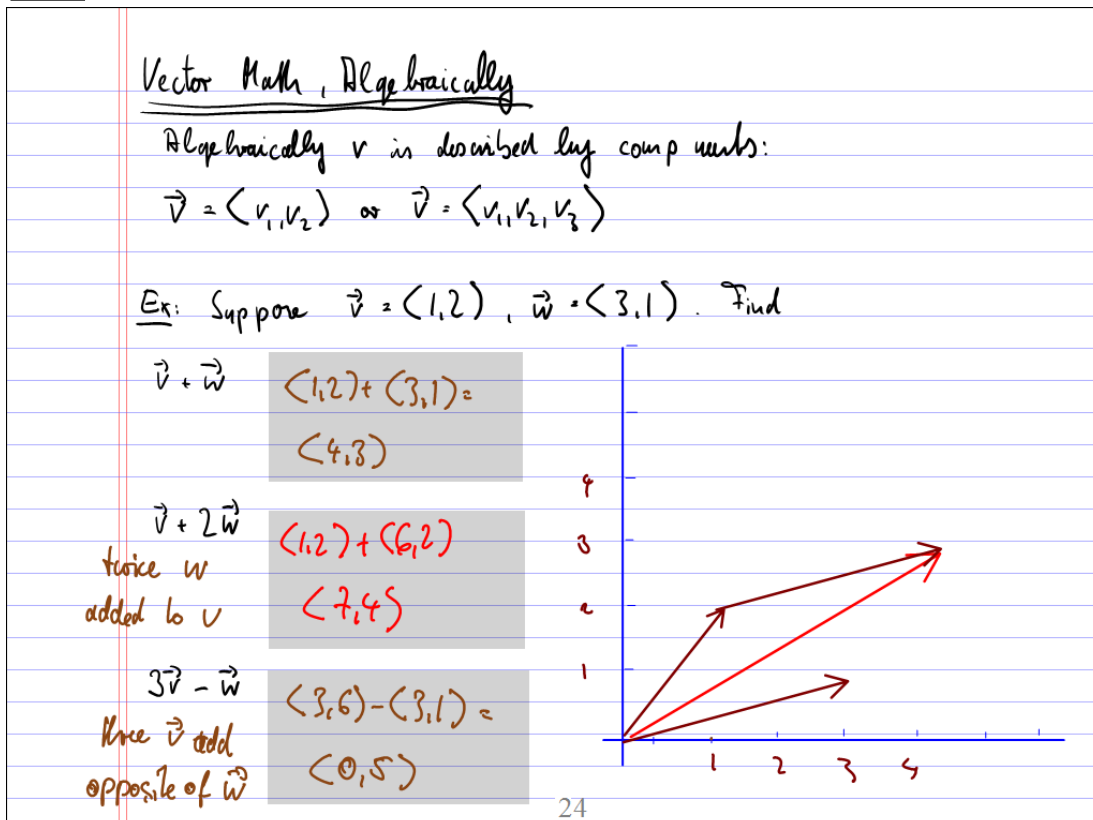 Vector Math, Algebraically
Algebraically v is described by comp nents:
v⃗ = ⟨v₁,v₂⟩ or v⃗ = ⟨v₁,v₂,v₃⟩
Ex: Suppose v⃗ = ⟨1,2⟩, w⃗ = ⟨3,1⟩. Find
v⃗ + w⃗
⟨1,2⟩+⟨3,1⟩=
⟨4,3⟩
v⃗ + 2w⃗
twice w
added to v
⟨1,2⟩+⟨6,2⟩
⟨7,4⟩
3v⃗ - w⃗
three v⃗ add
opposite of w⃗
⟨3,6⟩-⟨3,1⟩=
⟨0,5⟩
4
3
2
1
1 2 3 4
24